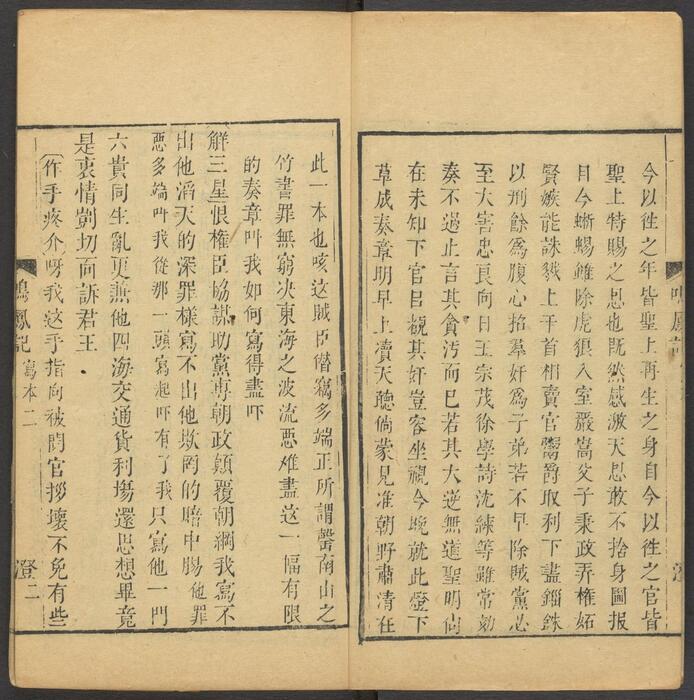 今以徃之年皆聖上再生之身自今以徃之官皆
聖上特賜之恩也既然感激天恩敢不捨身圖報
目今蜥蜴雖除虎狼入室嚴嵩父子秉政弄權妬
賢嫉能誅戮上平首相賣官鬻爵取利下盡錙銖
以刑餘爲腹心招羣奸爲子弟若不早除賊黨必
至大害忠良向日王宗茂徐學詩沈練等雖常劾
奏不過止言其貪汚而已若其大逆無道聖明尙
在未知下官目覩其奸豈容坐視今晚就此燈下
草成奏章明早上瀆天聽倘蒙見准朝野肅清在
鳴鳳記
此一本也咳這賊臣僭竊多端正所謂罄南山之
竹書罪無窮决東海之波流惡难盡這一幅有限
的奏章叫我如何寫得盡吓
觧三星恨權臣協謀助黨専朝政顛覆朝綱我寫不
出他滔天的深罪樣寫不出他欺罔的暗中腸他罪
惡多端呌我從那一頭寫起吓有了我只寫他一門
六貴同生亂更兼他四海交通貨利塲還思想畢竟
是衷情剴切面訴君王
鳴鳳記 寫本二 澄二
〔作手疼介呀我這手指向被問官拶壞不免有些